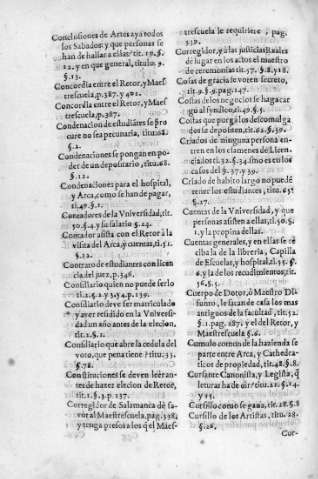 Conclusiones de Artes aya todos
los Sabados: y que personas se
han de hallar a ellas: tit. 19. §.
22. y en general, titulo. 9.
§. 13.
Concordia entre el Retor, y Maes
trescuela. p. 387. y 402.
Concordia entre el Retor, y Maes
trescuela. p. 387.
Condenacion de estudiãtes se pro
cure no sea pecunaria, titu. 68.
§. 2.
Condenaciones se pongan en po-
der de un depositario, titu. 68.
§. 12.
Condenaciones para el hospital,
y Arca, como se han de pagar,
tit. 49. §. 1.
Contadores de la Vniversidad, tit.
50. §. 4. y su salario §. 24.
Contador asista con el Retor à la
visita del Arca, y cuentas, ti. 51.
§. 12.
Contrato de estudiantes con licen
cia del juez. p. 346.
Consiliario quien no puede ser lo
tit. 1. §. 2 y 3. y 4. p. 139.
Consiliario deve ser matriculado
y aver residido en la Vniversi-
dad un año antes de la elecion,
tit. 2. §. 1.
Consiliario que abre la cedula del
voto, que pena tiene? titu. 33.
§. 78.
Constituciones se deven leer an-
tes de hazer eleccion de Retor,
tit. 1. §. 3. p. 137.
Corregidor de Salamanca dè fa-
vor al Maestrescuela, pag. 398.
y tenga presos a los q̃ el Maes-
trescuela le requiriere, pag.
339.
Corregidor, y à las justicias Reales
de lugar en los actos el maestro
de ceremonias tit. 57. §. 8. y 18.
Cosas de gracia se voten secreto,
tit. 9. §. 9. pag. 147.
Costas de los negocios se haga car
go al syndico, tit. 49. §. 5.
Costas que por galos de comulga
dos se depositen, tit. 62. §. 39.
Criados de ninguna persona en-
tren en los examenes de Licen-
ciados tit. 32. §. 34. sino es en los
casos del §. 37. y 39.
Criados de habito largo no pue dẽ
tener los estudiantes, titu. 65
§. 17.
Cuentas de la Vniversidad, y que
personas asisten a ellas, tit. 50. §.
1. y la propina dellas.
Cuentas generales, y en ellas se re
ciba la de la libreria, Capilla
de Escuelas, y hospital, tit. 55. §.
6. y la de los recudimientos, tit.
56. §. 5.
Cuerpo de Dotor, ò Maestro Di-
funto, le sacan de casa los mas
antiguos de la facultad, tit. 52.
§. 1. pag. 287. y el del Retor, y
Maestrescuela §. 6.
Cumulo comun de la hazienda se
parte entre Arca, y Cathedra-
ticos de propiedad, tit. 48. §. 8.
Cursante Canonista, y Legista, q̃
leturas ha de oir? titu. 21. §. 14.
y 15.
Cursillo como se gana, tit. 28. §. 8
Cursillo de los Artistas, titu. 28.
§. 26.
Cur-